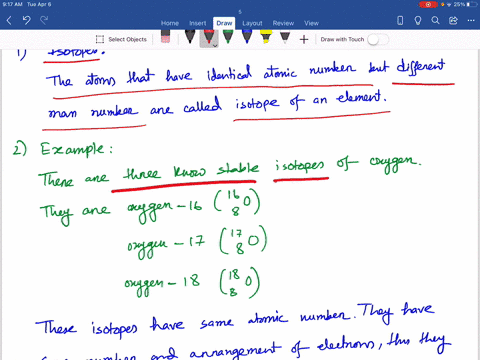 9:17 AM Tue Apr 6
25%
5
Home Insert Draw Layout Review View
Select Objects
Draw with Touch
1) Isotopes:
The atoms that have identical atomic number but different
man number are called isotope of an element.
2) Example:
There are three know stable isotopes of oxygen.
They are oxygen - 16 (16 8 O)
oxygen - 17 (17 8 O)
oxygen - 18 (18 8 O)
These isotopes have same atomic number. They have
number and arrangement of electrons, thus they